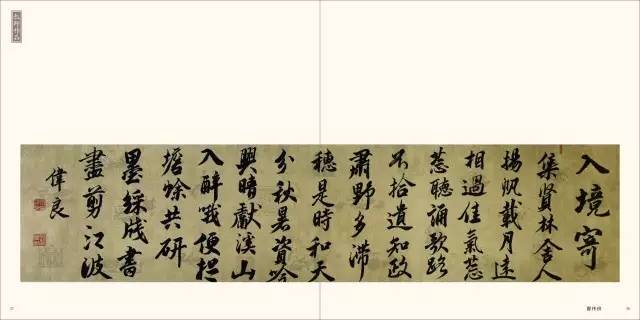 入境寄
集賢林舍人
揚帆載月遠
相過佳氣葱
葱聽誦歌路
不拾遺知政
肅野多滯
穗是時和天
分秋暑資吟
興晴獻溪山
入醉哦便捉
蟾蜍共研
墨綵牋書
盡剪江波
偉良